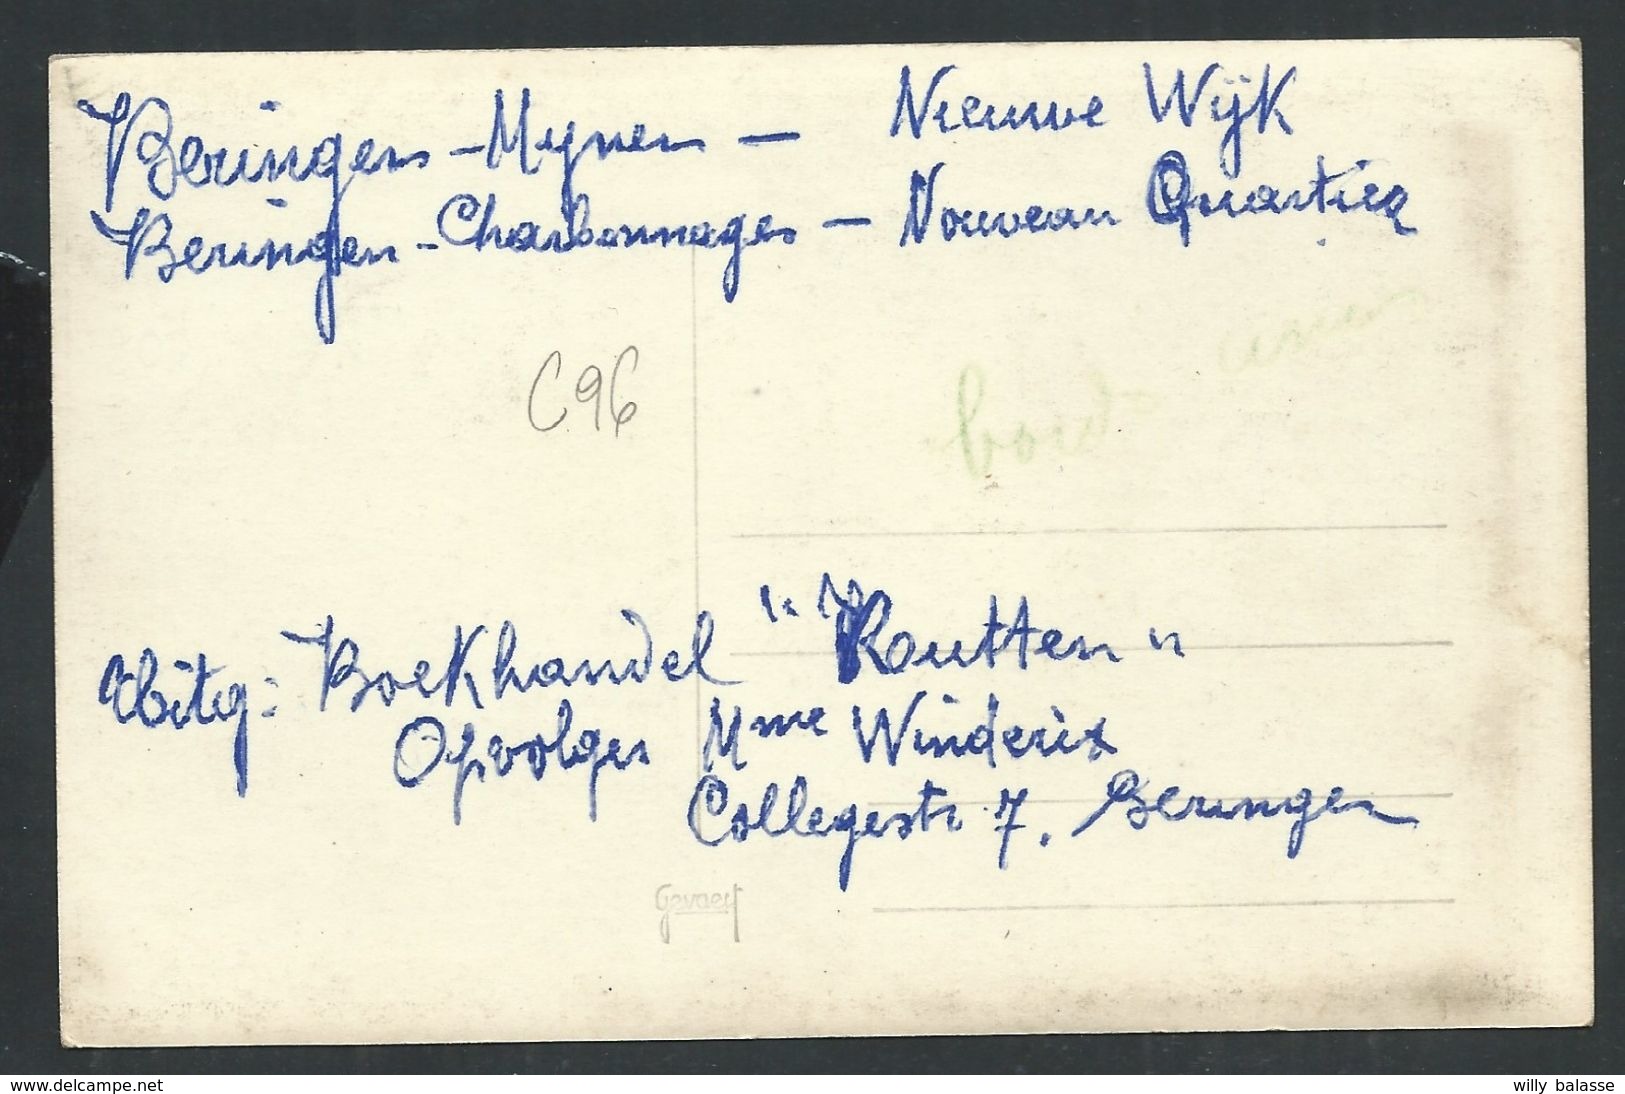 Beringen - Mynen - Nieuwe Wijk
Beringen - Charbonnages - Nouveau Quartier
C96
Uitg: Boekhandel "Routten"
Opvolger Mme Winderix
Collegestr 7. Beringen
Gevaert
www.delcampe.net
willy balasse